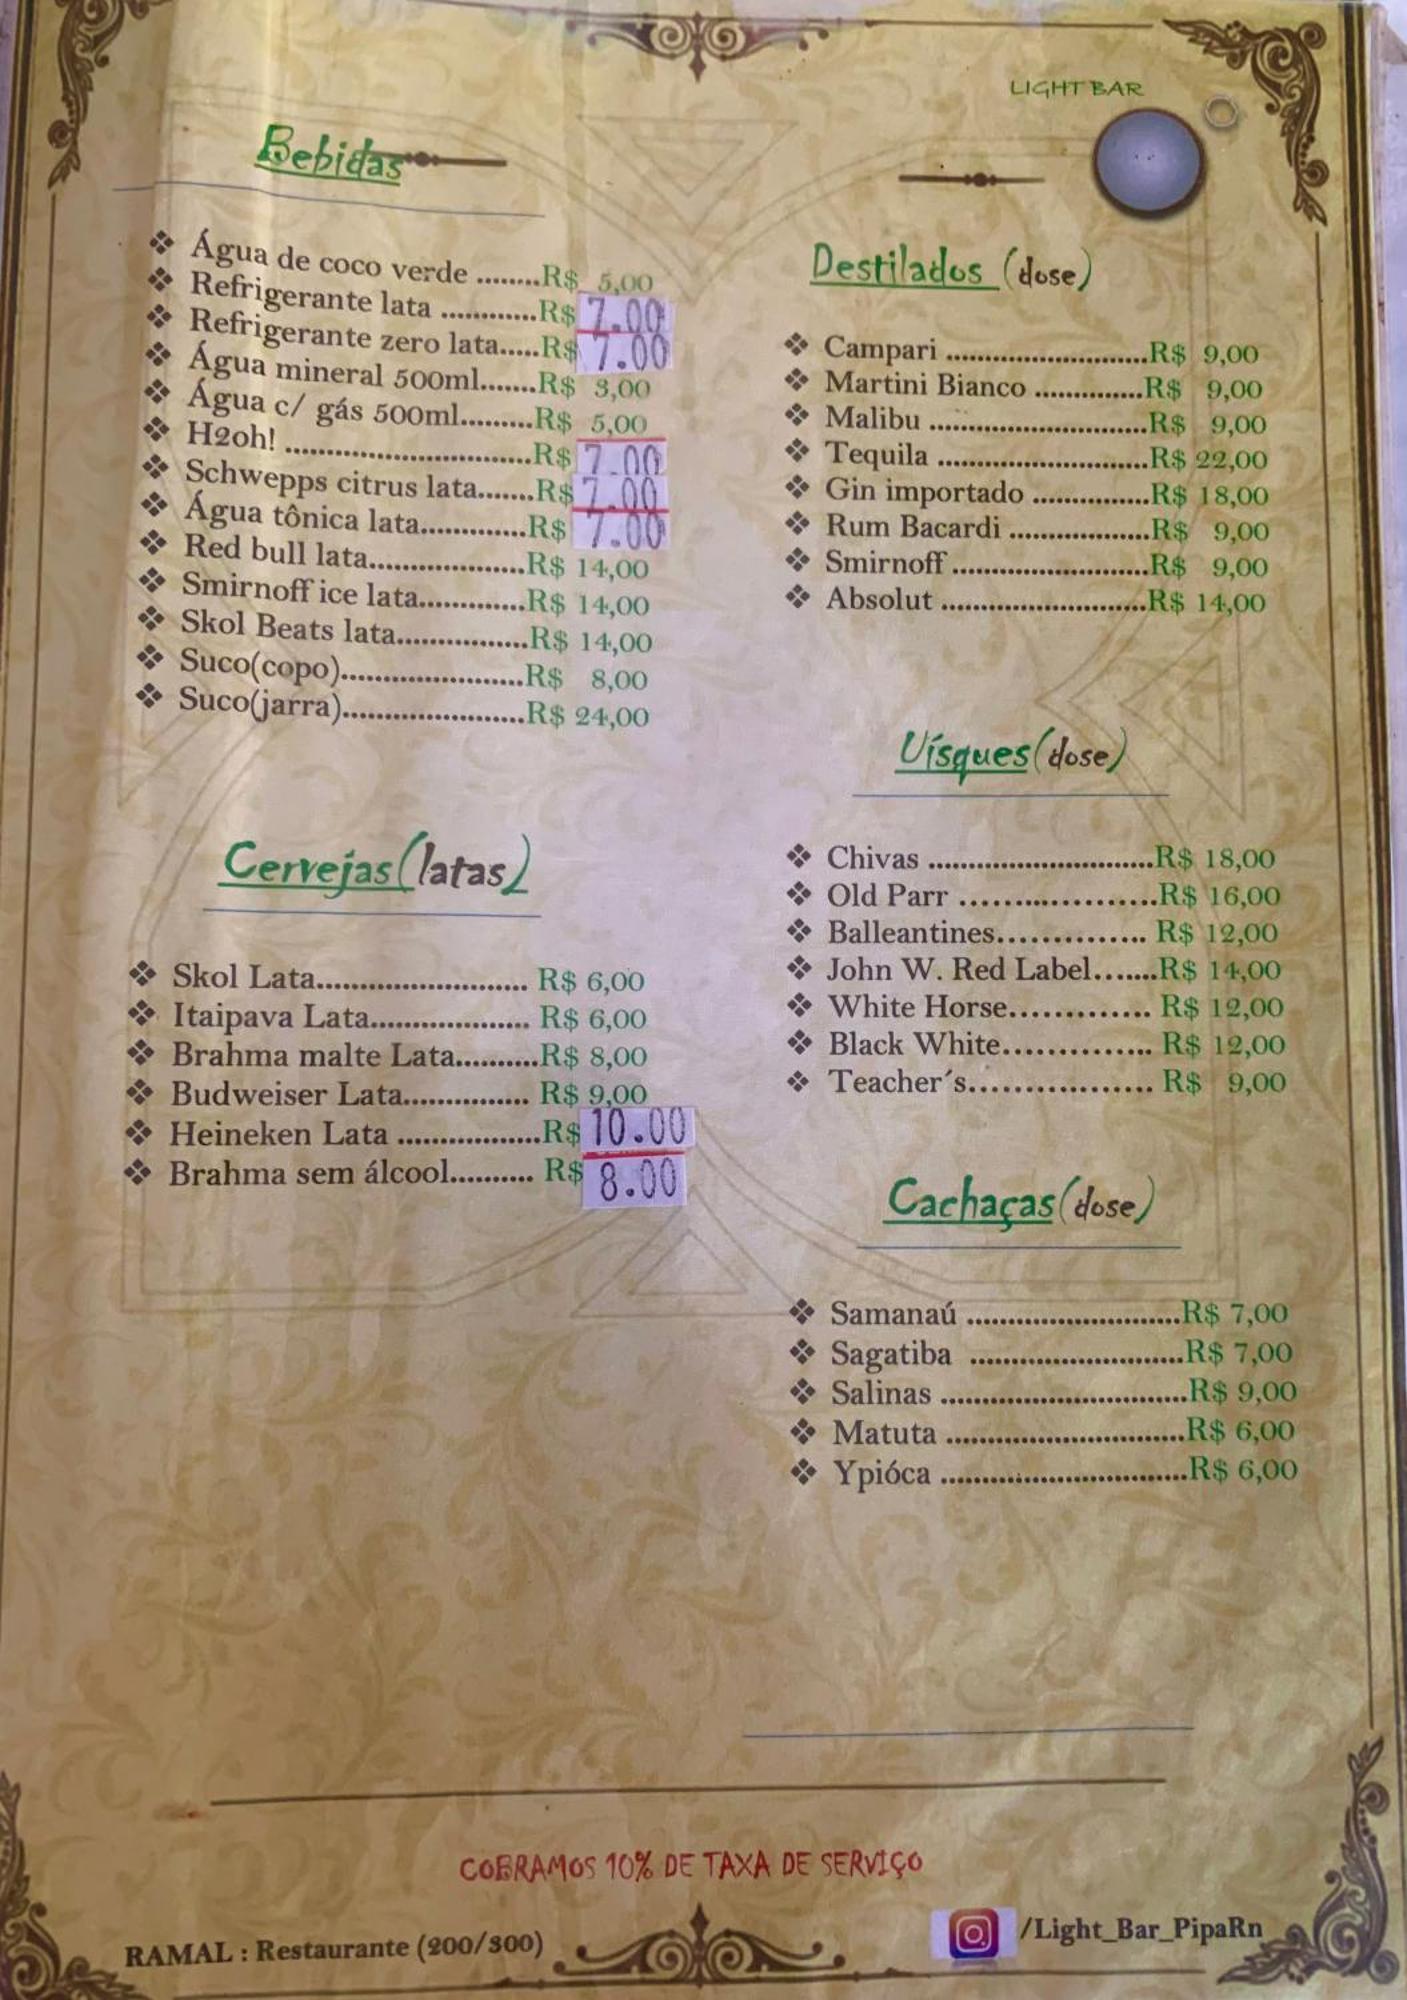 LIGHT BAR
Bebidas
❖ Água de coco verde ........R$ 5,00
❖ Refrigerante lata ............R$ 7.00
❖ Refrigerante zero lata.....R$ 7.00
❖ Água mineral 500ml.......R$ 3,00
❖ Água c/ gás 500ml.........R$ 5,00
❖ H2oh! ...............................R$ 7.00
❖ Schwepps citrus lata.......R$ 7.00
❖ Água tônica lata.............R$ 7.00
❖ Red bull lata...................R$ 14,00
❖ Smirnoff ice lata.............R$ 14,00
❖ Skol Beats lata................R$ 14,00
❖ Suco(copo)......................R$ 8,00
❖ Suco(jarra)......................R$ 24,00
Cervejas(latas)
❖ Skol Lata.......................... R$ 6,00
❖ Itaipava Lata.................... R$ 6,00
❖ Brahma malte Lata..........R$ 8,00
❖ Budweiser Lata............... R$ 9,00
❖ Heineken Lata .................R$ 10.00
❖ Brahma sem álcool.......... R$ 8.00
Destilados (dose)
❖ Campari .........................R$ 9,00
❖ Martini Bianco ..............R$ 9,00
❖ Malibu ...........................R$ 9,00
❖ Tequila ..........................R$ 22,00
❖ Gin importado ...............R$ 18,00
❖ Rum Bacardi ..................R$ 9,00
❖ Smirnoff .........................R$ 9,00
❖ Absolut ..........................R$ 14,00
Vísques(dose)
❖ Chivas ............................R$ 18,00
❖ Old Parr ....................R$ 16,00
❖ Balleantines............... R$ 12,00
❖ John W. Red Label.......R$ 14,00
❖ White Horse............. R$ 12,00
❖ Black White.............. R$ 12,00
❖ Teacher´s................. R$ 9,00
Cachaças(dose)
❖ Samanaú ..........................R$ 7,00
❖ Sagatiba ..........................R$ 7,00
❖ Salinas ..............................R$ 9,00
❖ Matuta .............................R$ 6,00
❖ Ypióca ..............................R$ 6,00
COBRAMOS 10% DE TAXA DE SERVIÇO
RAMAL : Restaurante (200/300)
/Light_Bar_PipaRn